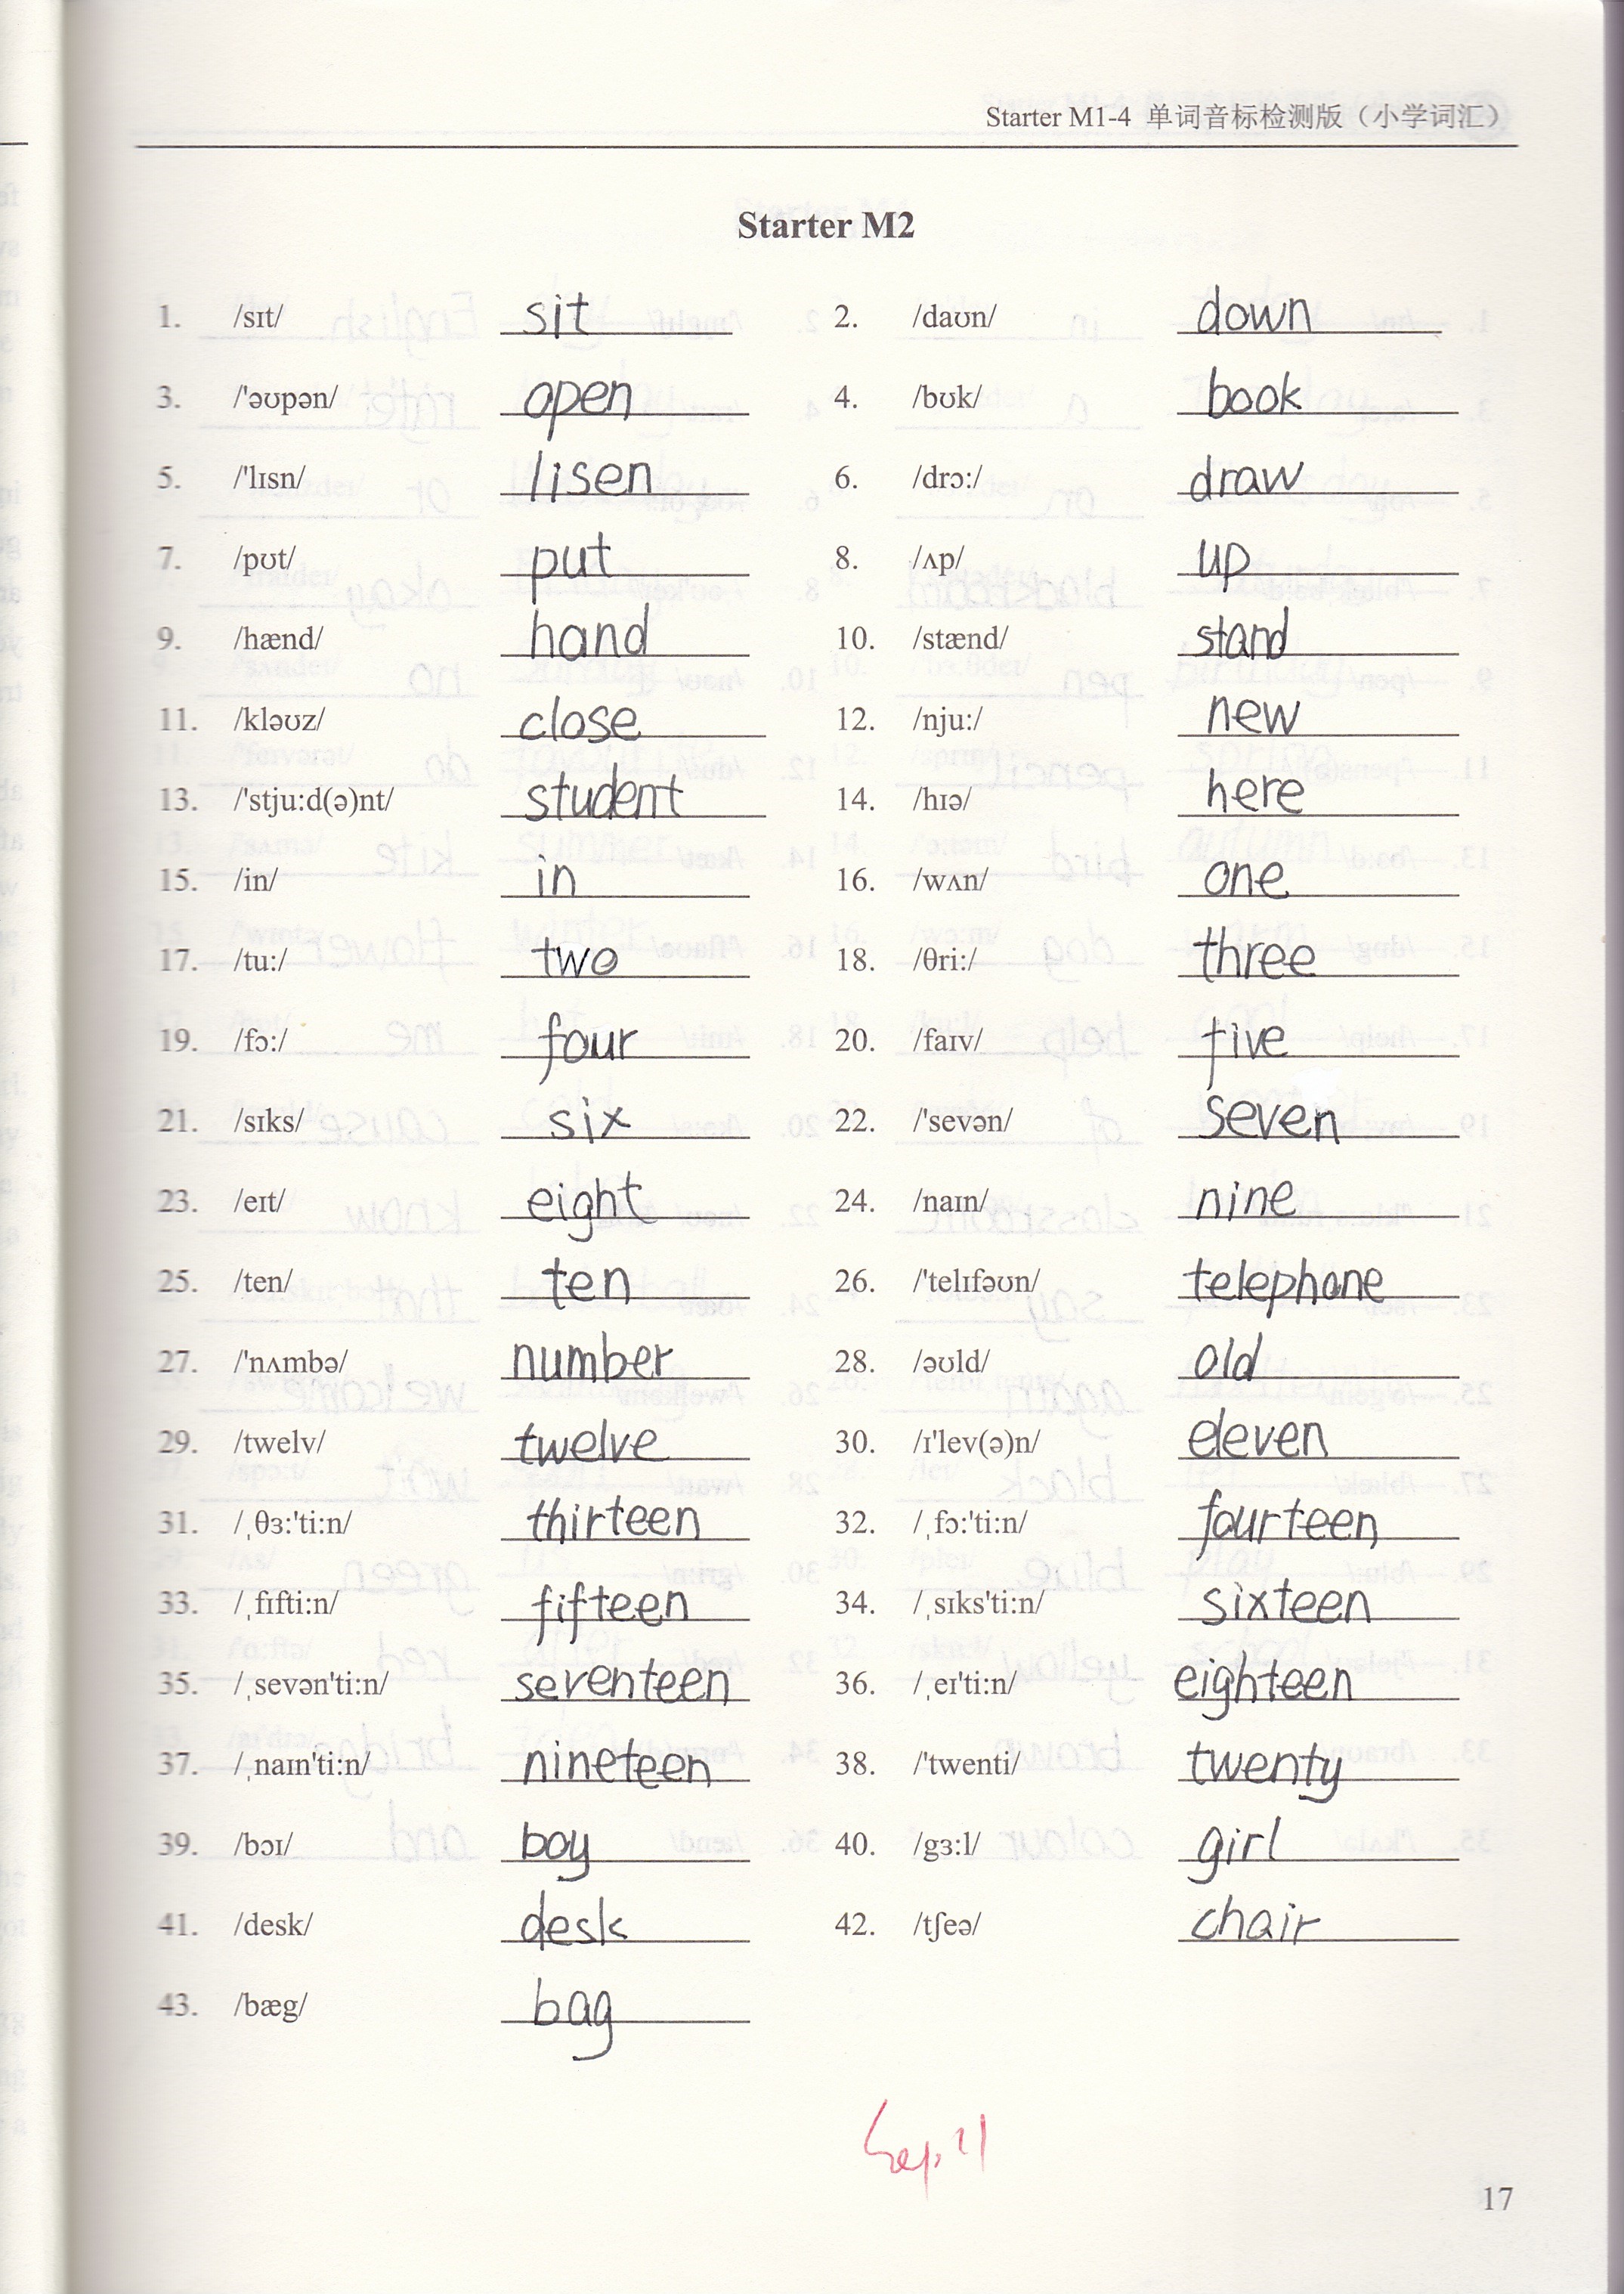 Starter M1-4 单词音标检测版（小学词汇）
Starter M2
1. /sɪt/ sit 2. /daʊn/ down
3. /'əʊpən/ open 4. /bʊk/ book
5. /'lɪsn/ lisen 6. /drɔ:/ draw
7. /pʊt/ put 8. /ʌp/ up
9. /hænd/ hand 10. /stænd/ stand
11. /kləʊz/ close 12. /nju:/ new
13. /'stju:d(ə)nt/ student 14. /hɪə/ here
15. /in/ in 16. /wʌn/ one
17. /tu:/ two 18. /θri:/ three
19. /fɔ:/ four 20. /faɪv/ five
21. /sɪks/ six 22. /'sevən/ seven
23. /eɪt/ eight 24. /naɪn/ nine
25. /ten/ ten 26. /'telɪfəʊn/ telephone
27. /'nʌmbə/ number 28. /əʊld/ old
29. /twelv/ twelve 30. /ɪ'lev(ə)n/ eleven
31. /ˌθɜ:'ti:n/ thirteen 32. /ˌfɔ:'ti:n/ fourteen
33. /ˌfɪfti:n/ fifteen 34. /ˌsɪks'ti:n/ sixteen
35. /ˌsevən'ti:n/ seventeen 36. /ˌeɪ'ti:n/ eighteen
37. /ˌnaɪn'ti:n/ nineteen 38. /'twenti/ twenty
39. /bɔɪ/ boy 40. /gɜ:l/ girl
41. /desk/ desk 42. /tʃeə/ chair
43. /bæg/ bag
Sep. 21
17